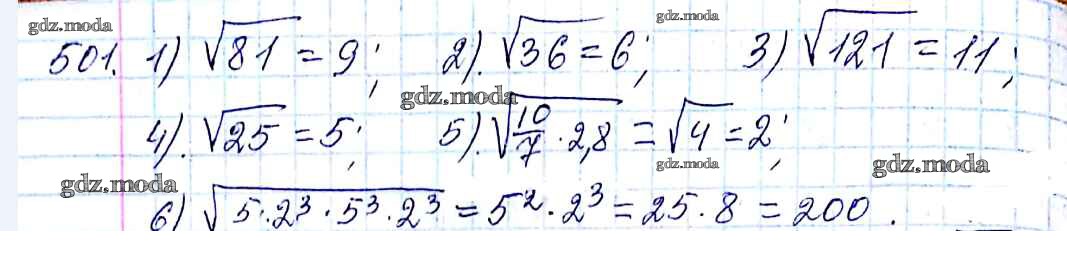 gdz.moda gdz.moda
501. 1) √81 = 9; 2). √36 = 6; 3) √121 = 11;
gdz.moda
4). √25 = 5; 5). √(10/7 · 2,8) = √4 = 2;
gdz.moda gdz.moda gdz.moda
6) √(5 · 2³ · 5³ · 2³) = 5² · 2³ = 25 · 8 = 200.